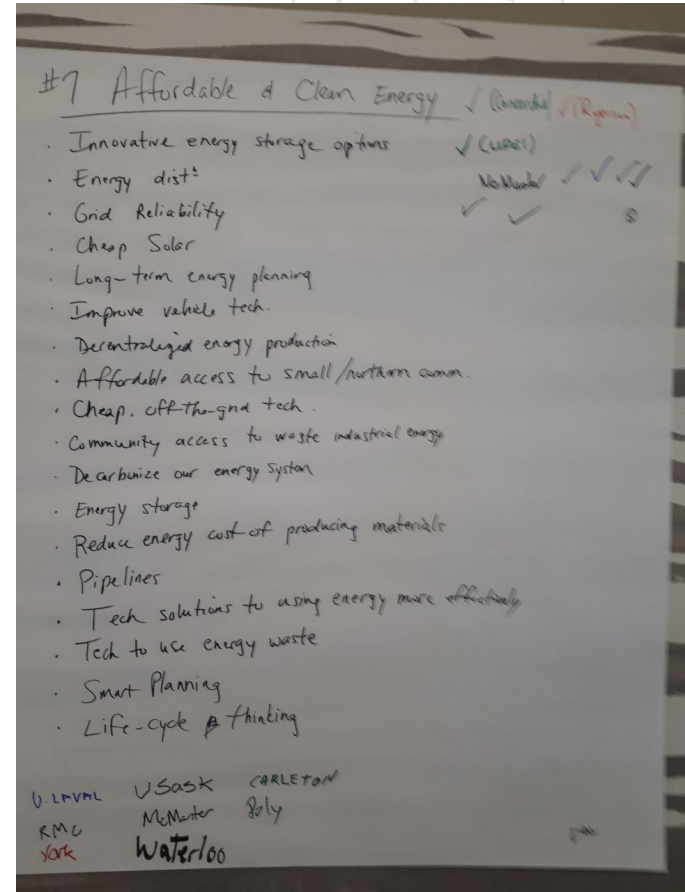 #7 Affordable & Clean Energy ✓ (Concordia) ✓ (Ryerson)
· Innovative energy storage options ✓ (UPEI)
· Energy distⁿ ✓ ✓ ✓ ✓
· Grid Reliability ✓ ✓ 8
· Cheap Solar
· Long-term energy planning
· Improve vehicle tech.
· Decentralized energy production
· Affordable access to small/northern comm.
· Cheap, off-the-grid tech.
· Community access to waste industrial energy
· Decarbonize our energy system
· Energy storage
· Reduce energy cost of producing materials
· Pipelines
· Tech solutions to using energy more effectively
· Tech to use energy waste
· Smart Planning
· Life-cycle thinking
U. LAVAL USask CARLETON
RMC McMaster Poly
York Waterloo